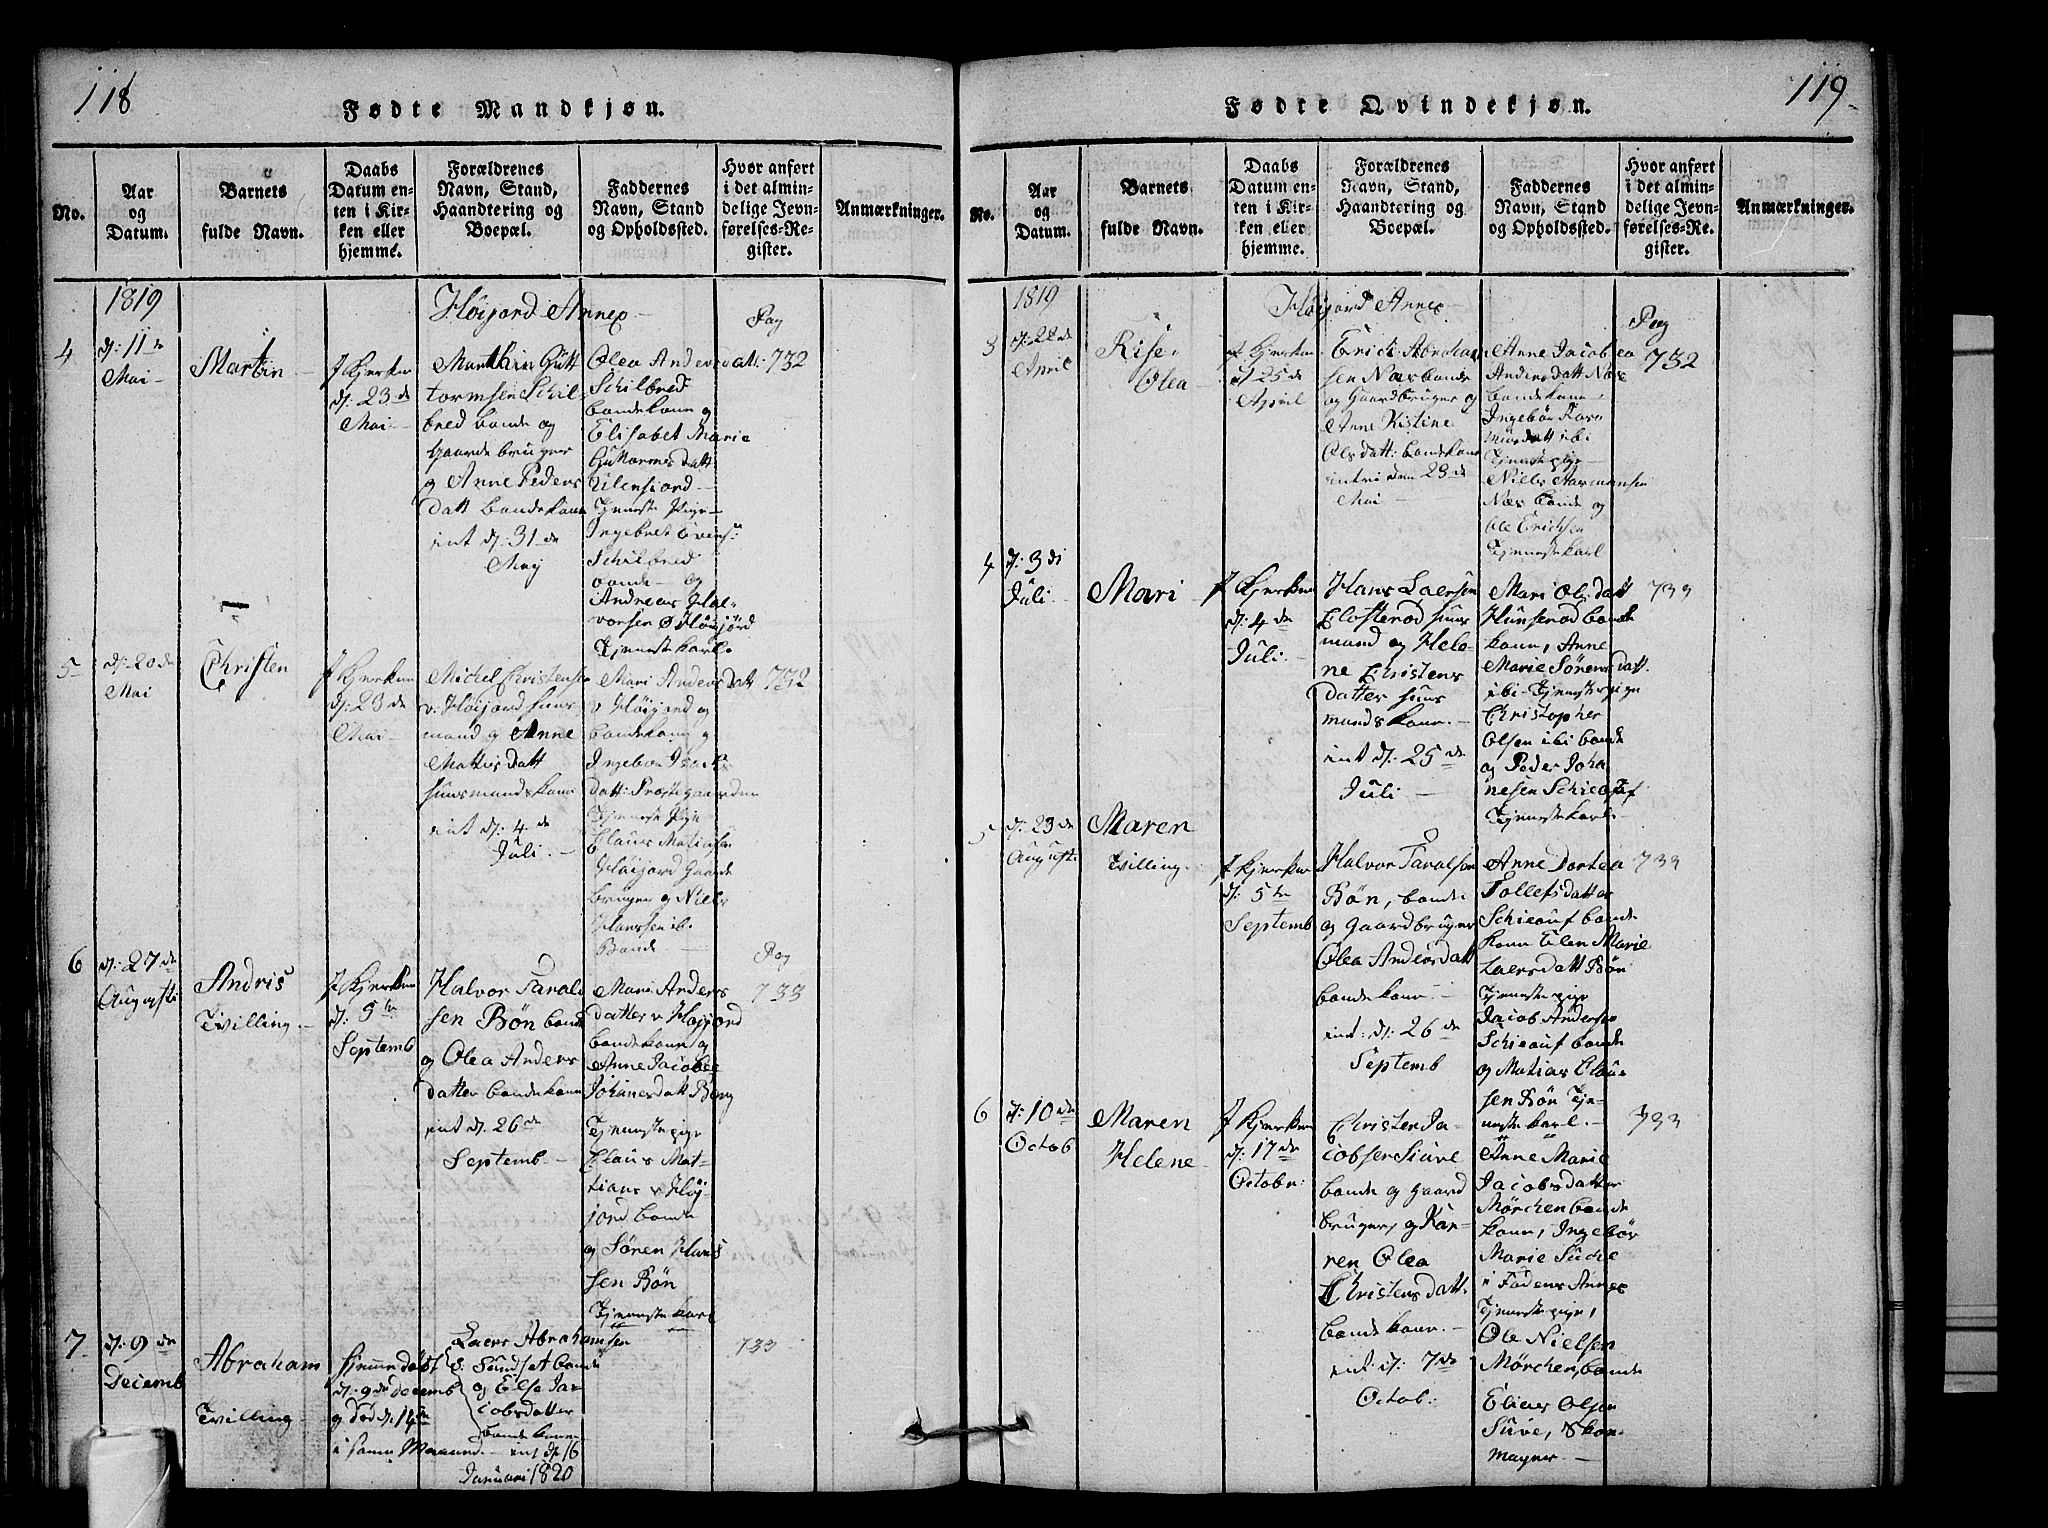 118
Fødte Mandkjøn.
No.
Aar
og
Datum.
Barnets
fulde Navn.
Daabs
Datum en-
ten i Kir-
ken eller
hjemme.
Forældrenes
Navn, Stand,
Haandtering og
Boepæl.
Faddernes
Navn, Stand
og Opholdssted.
Hvor anført
i det almin-
delige Jevn-
førelses-Re-
gister.
Anmærkninger.
1819
Høijord Annex
Pag
4
d: 11 de
Mai
Martin
I Kjerken
d: 23 de
Mai
Marthin Gutt
tormsen Schil-
bred bonde og
Gaardbruger
og Anne Peders
datt bondekone
int d: 31 de
May
Olea Anders datt:
Schilbred
bondekone og
Elisabet Marie
Guttormsdatt
Tjenste Pige
Ingebret Evens:
Schilbred
bonde og
Andreas Hal-
vorsen Høijord
Tjenstekarl
732
5
d: 20 de
Mai
Christen
I Kjerken
d: 23 de
Mai
Michel Christensen
v: Høijord huus
mand og Anne
Matiesdatt
huusmandskone
int d: 4 de
Juli
Mari Anders datt
v Høijord og
bondekone og
Ingebor
datt: Præstegaarden
Tjenste Pige
Claus Matiesen
Høijord Gaard
bruger og Niels
Hanssen ib.
Bonde
732
6
d: 27 de
Augusti
Andris
Tvilling
I Kjerken
d: 5 te
Septemb
Halvor Taral-
sen Bøn bonde
og Olea Anders
datter bondekone
int d. 26 de
Septemb
Mari Anders
datter v Høijord
bondekone og
Anne Jacobea
Johanesdatt Berg
Tjenstepige
Claus Mat-
tians v Høj-
jord bonde
og Søren Hans
sen Bøn
Tjenstekarl
Pag
733
7
d: 9 de
Decemb
Abraham
Tvilling
hjemmedøbt
d: 9 de Decemb
og død d. 14 de
i samme Maaned
Laers Abrahamsen
v. Sundset bonde
og Else Ja-
cobsdatter
bondekone
int d: 16
Januari 1820
733
119
Fødte Qvindekjøn.
No.
Aar
og
Datum.
Barnets
fulde Navn.
Daabs
Datum en-
ten i Kir-
ken eller
hjemme.
Forældrenes
Navn, Stand,
Haandtering og
Boepæl.
Faddernes
Navn, Stand
og Opholdssted.
Hvor anført
i det almin-
delige Jevn-
førelses-Re-
gister.
Anmærkninger.
1819
Høijord Annex
Pag
3
April
Rise
Olea
I Kjerken
d 25 de
April
Erich Abraham
sen Næs bonde
og Gaardbruger og
Anne Kistine
Olsdatt: bondekone
intri den 23 de
Mai
Anne Jacobea
Andersdatt Næs
bondekone,
Ingebør
ibi
Tjenstepige
Niels Aasmunsen
Næs bonde og
Ole Erichsen
Tjenstekarl
732
4
d: 3 di
Juli
Mari
I Kjerken
d: 4 de
Juli
Hans Laersen
Closterød huus
mand og Hele-
ne Christens
datter huus
mandskone
int d: 25 de
Juli
Mari Olsdatt
Hunserød bonde
kone, Anne
Marie Sørensdatt.
ibi Tjenstepige
Christopher
Olsen ibi bonde
og Peder Joha
nesen Schieauf
Tjenstekarl
733
5
d: 23 de
Augusti
Maren
Tvilling
I Kjerken
d: 5 te
Septemb
Halvor Taralsen
Bøn, bonde
og Gaardbruger
Olea Andersdatt
bondekone
int: d: 26 de
Septemb
Anne Dortea
Tollefsdatter
Schieauf bonde
kone Elen Marie
Laersdatt Bøn
Tjenstepige
Jacob Andersen
Schieauf bonde
og Matias Clau-
sen Bøn Tje-
nestekarl.
733
6
d: 10 de
Octob
Maren
Helene
I Kjerken
d: 17 de
Octobr:
Christen Ja-
cobsen Siuve
bonde og gaard
bruger, og Kar-
ren Olea
Christensdatt.
bondekone.
int: d: 7 de
Octob:
Anne Marie
Jacobsdatter
Mørchen bonde
kone, Ingebør
Marie Suche
i Fodens Annex
Tjenstepige,
Ole Nielsen
Mørchen, bonde
Elias Olsen
Suve, Skom-
mager
733